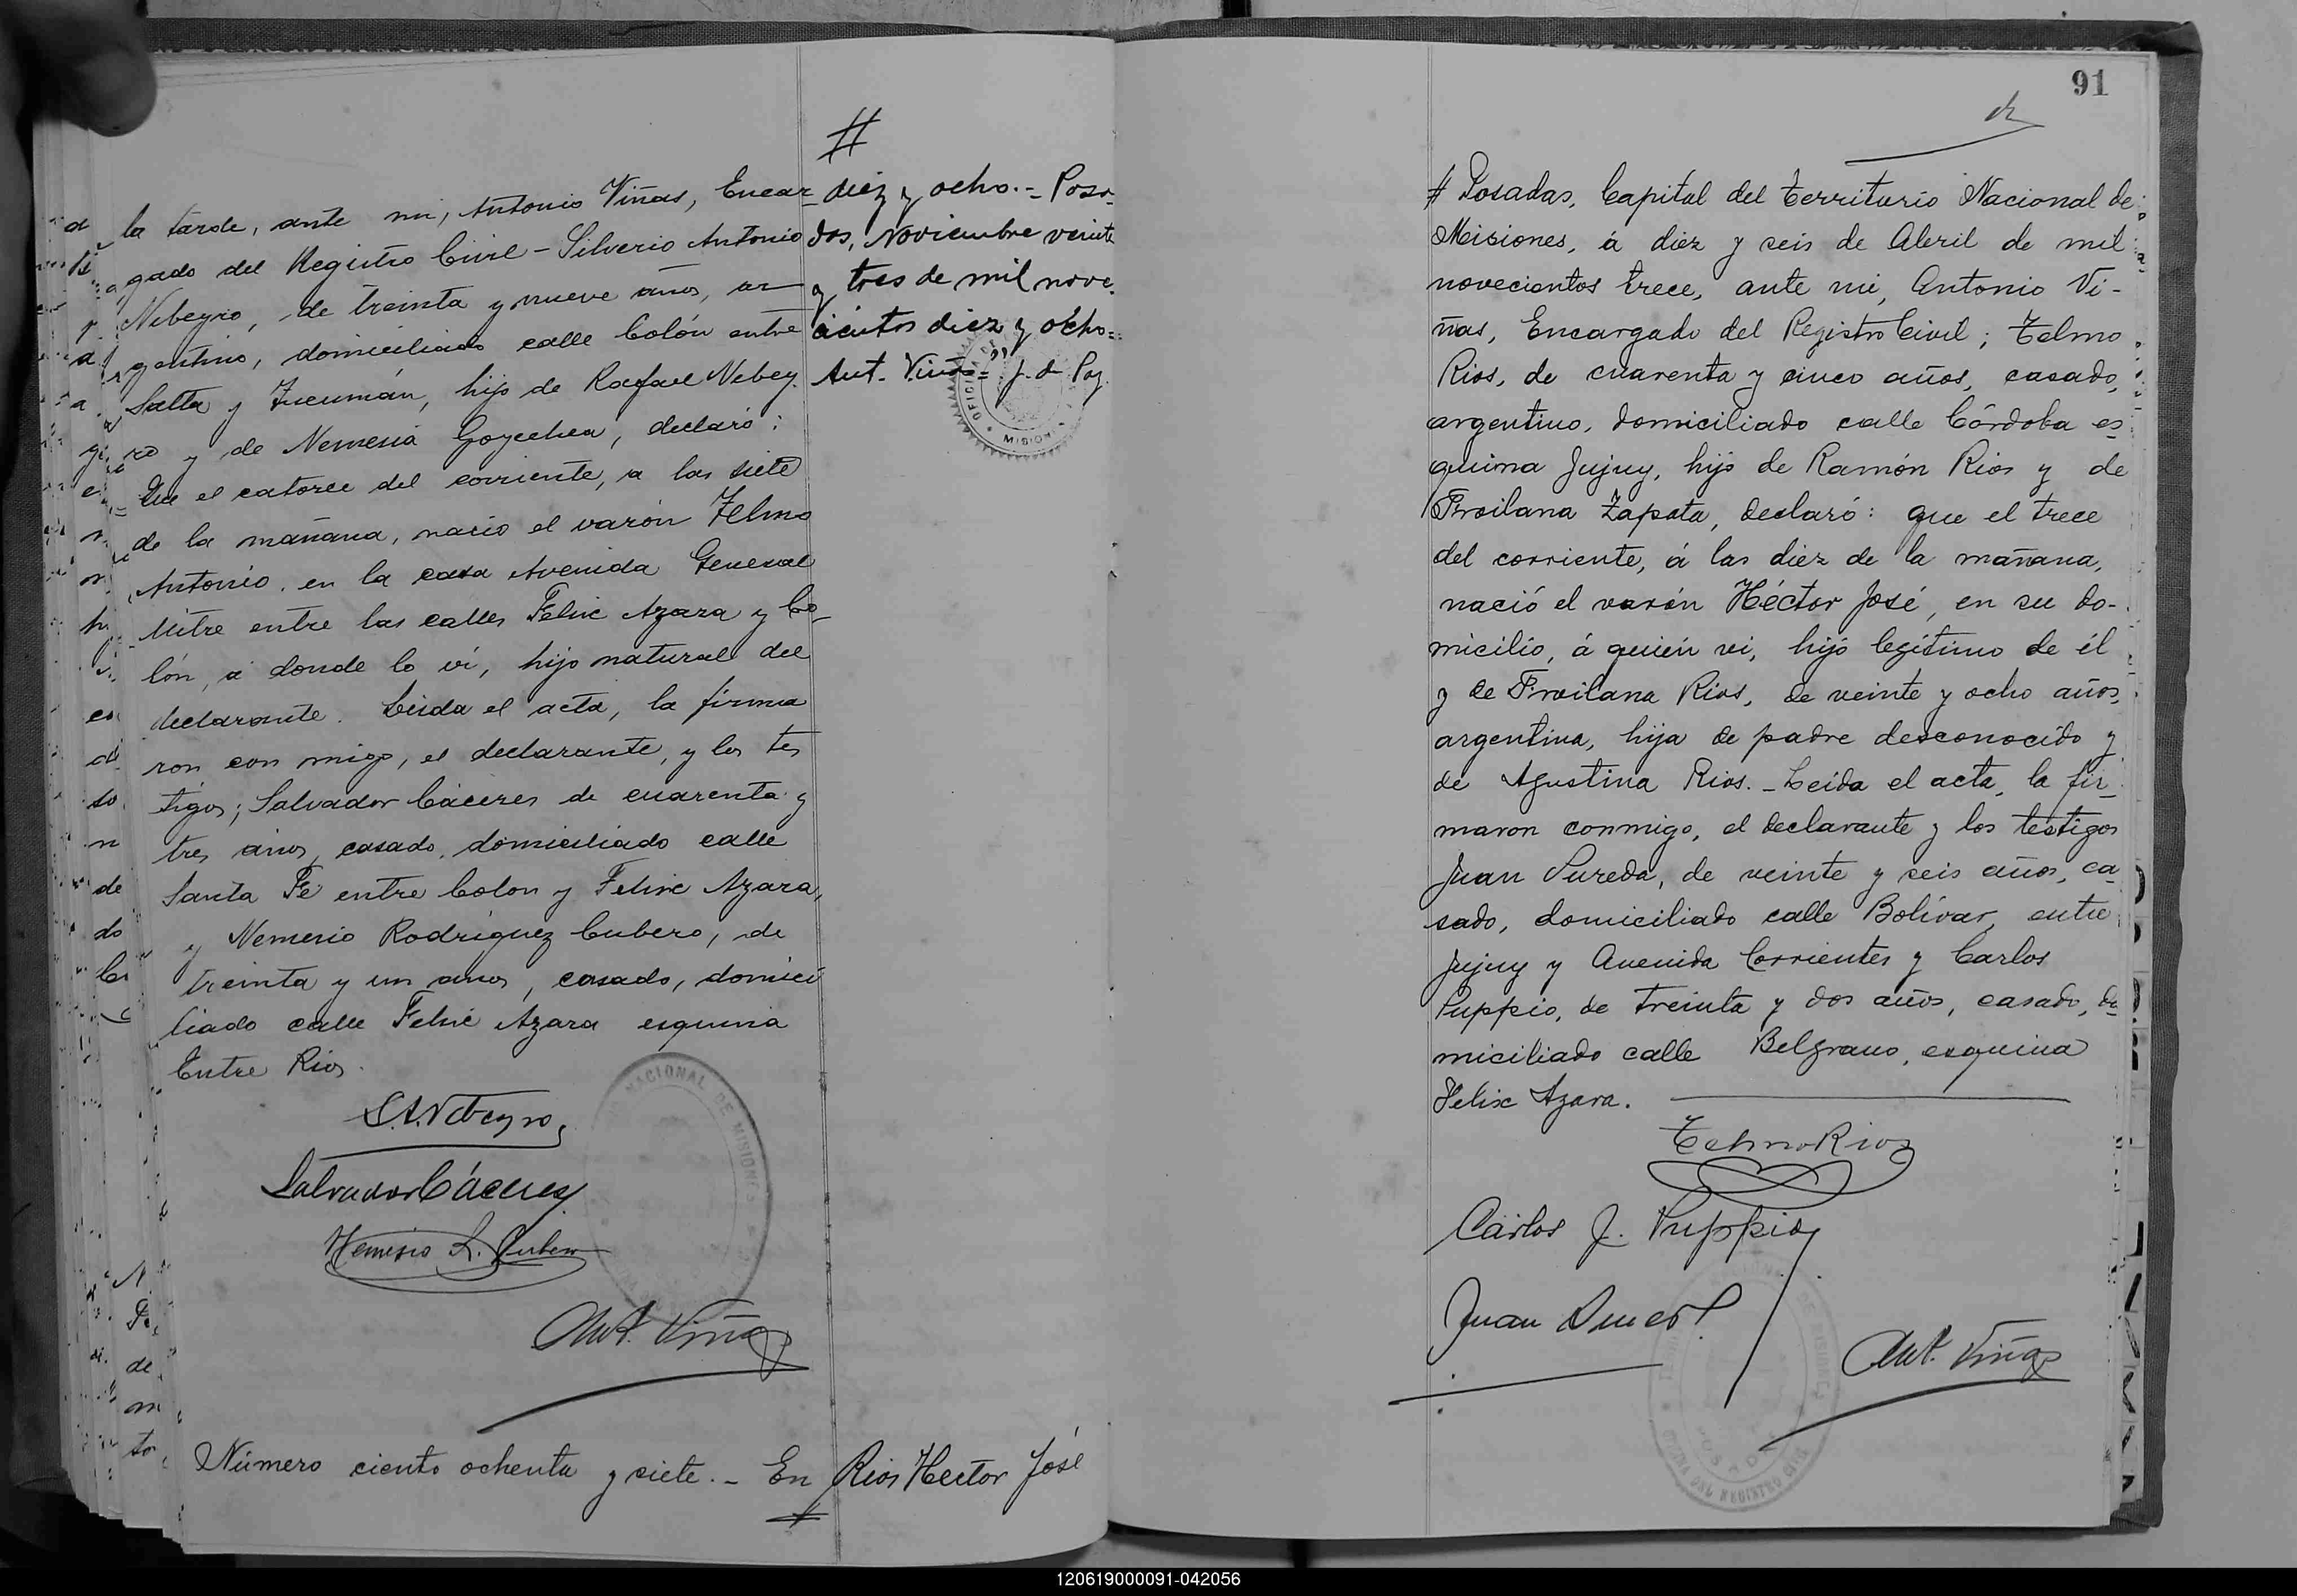 la tarde, ante mi, Antonio Viñas, Encar
gado del Registro Civil - Silverio Antonio
Nebeyro, de treinta y nueve años, ar
gentino, domiciliado calle Colón entre
Salta y Tucumán, hijo de Rafael Nebey
ro y de Nemesia Goyechea, declaró:
Que el catorce del corriente, a las siete
de la mañana, nació el varón Telmo
Antonio, en la casa Avenida General
Mitre entre las calles Felix Azara y Co-
lón, a donde lo ví, hijo natural del
declarante. Leida el acta, la firma
ron con migo, el declarante, y los tes
tigos; Salvador Cáceres de cuarenta y
tres años, casado, domiciliado calle
Santa Fé entre Colon y Felix Azara,
y Nemesio Rodriguez Cubero, de
treinta y un años, casado, domici
liado calle Felix Azara esquina
Entre Rios.
S. A. Nebeyro
Salvador Cáceres
Nemesio R. Cubero
Ant. Viñas
Número ciento ochenta y siete. - En
#
diez y ocho. - Posa-
das, Noviembre veinte
y tres de mil nove-
cientos diez y ocho =
Ant. Viñas = J. de Paz
MISION
NACIONAL DE MISIONES
Rios Hector José
91
# Posadas, Capital del Territorio Nacional de
Misiones, á diez y seis de Abril de mil
novecientos trece, ante mi, Antonio Vi-
ñas, Encargado del Registro Civil; Telmo
Rios, de cuarenta y cinco años, casado,
argentino, domiciliado calle Córdoba es-
quina Jujuy, hijo de Ramón Rios y de
Froilana Zapata, declaró: que el trece
del corriente, á las diez de la mañana,
nació el varón Héctor José, en su do-
micilio, á quién vi, hijo legítimo de él
y de Froilana Rios, de veinte y ocho años,
argentina, hija de padre desconocido y
de Agustina Rios. - Leída el acta, la fir-
maron conmigo, el declarante y los testigos
Juan Sureda, de veinte y seis años, ca-
sado, domiciliado calle Bolívar, entre
Jujuy y Avenida Corrientes y Carlos
Puppio, de treinta y dos años, casado, do-
miciliado calle Belgrano, esquina
Felix Azara.
Telmo Rios
Carlos J. Puppio
Juan
Ant. Viñas
OFICINA DEL REGISTRO CIVIL
POSADAS
120619000091-042056